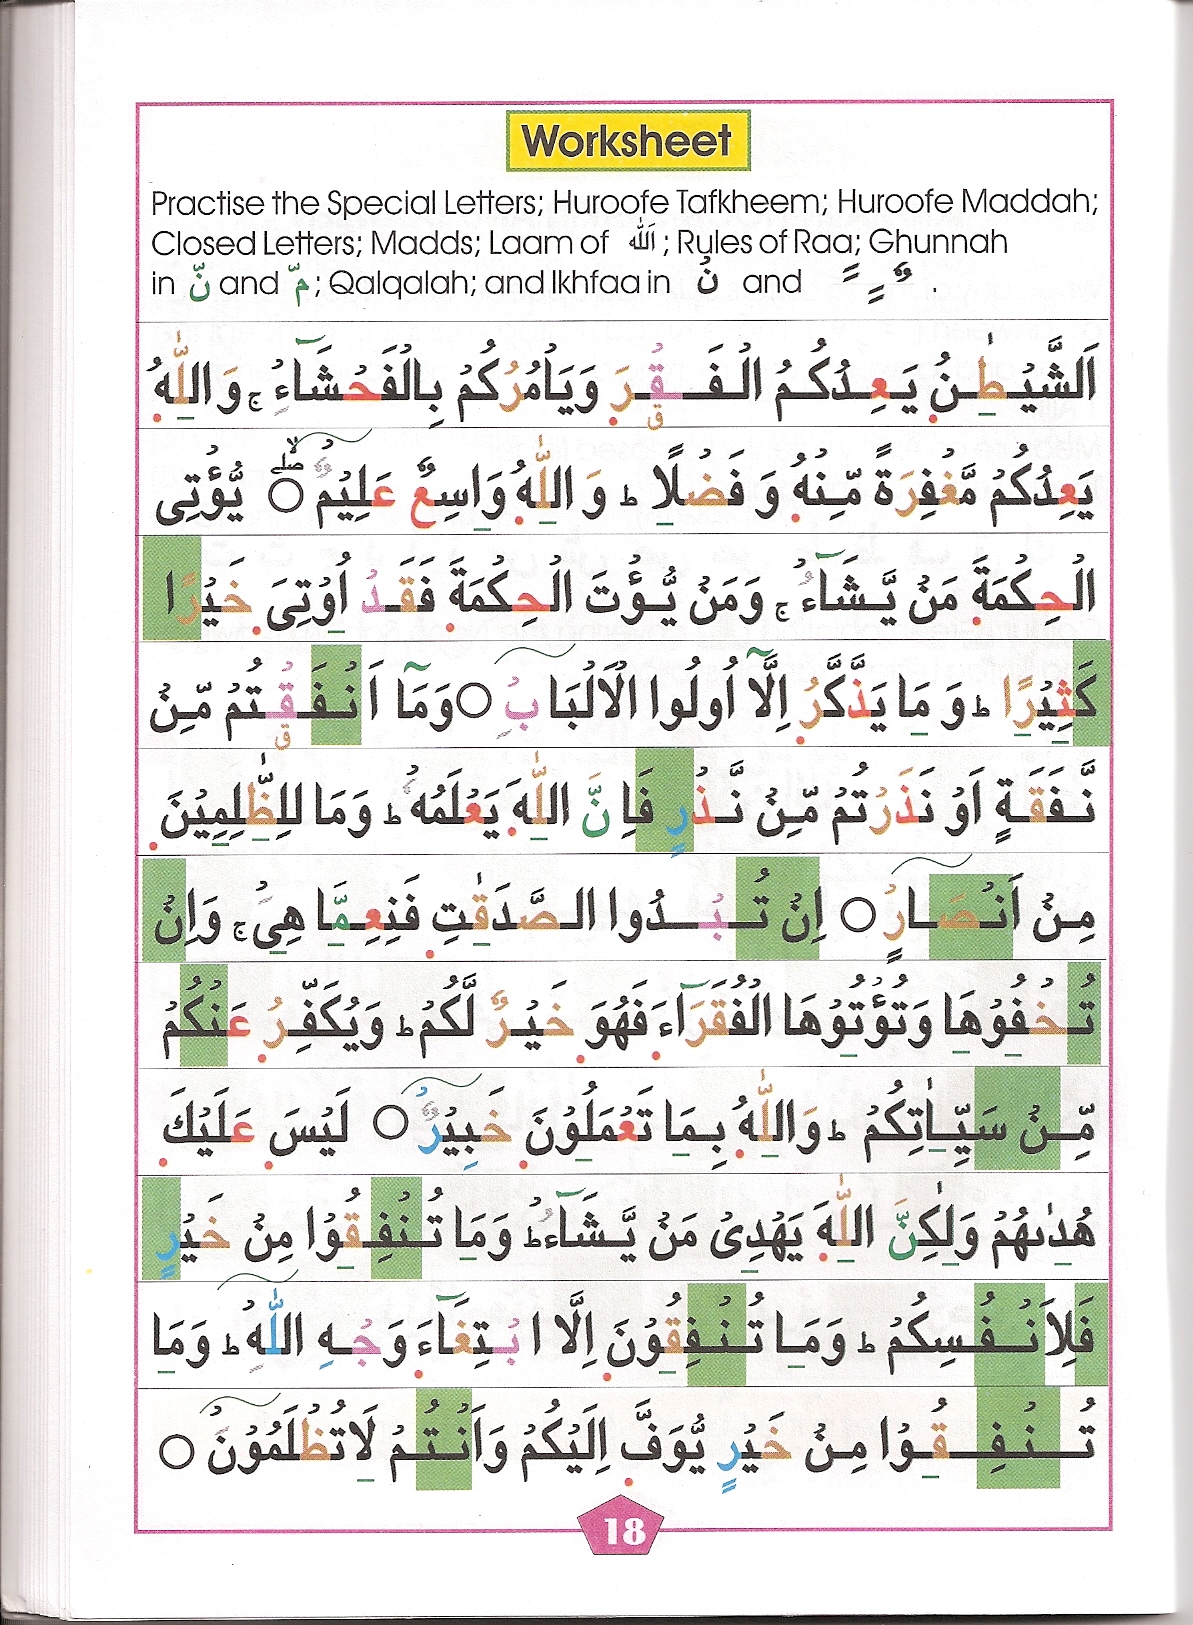 Worksheet
Practise the Special Letters; Huroofe Tafkheem; Huroofe Maddah;
Closed Letters; Madds; Laam of اَللّٰه ; Rules of Raa; Ghunnah
in نّ and مّ ; Qalqalah; and Ikhfaa in نْ and ـًـٍـٌ .
اَلشَّيْطٰنُ يَعِدُكُمُ الْفَقْرَ وَيَاْمُرُكُمْ بِالْفَحْشَآءِ ۚ وَاللّٰهُ
يَعِدُكُمْ مَّغْفِرَةً مِّنْهُ وَفَضْلًا ؕ وَاللّٰهُ وَاسِعٌ عَلِيْمٌ ۙۖ ○ يُّؤْتِى
الْحِكْمَةَ مَنْ يَّشَآءُ ۚ وَمَنْ يُّؤْتَ الْحِكْمَةَ فَقَدْ اُوْتِىَ خَيْرًا
كَثِيْرًا ؕ وَمَا يَذَّكَّرُ اِلَّاۤ اُولُوا الْاَلْبَابِ ○ وَمَاۤ اَنْفَقْتُمْ مِّنْ
نَّفَقَةٍ اَوْ نَذَرْتُمْ مِّنْ نَّذْرٍ فَاِنَّ اللّٰهَ يَعْلَمُهٗ ؕ وَمَا لِلظّٰلِمِيْنَ
مِنْ اَنْصَارٍ ○ اِنْ تُبْدُوا الصَّدَقٰتِ فَنِعِمَّا هِىَ ۚ وَاِنْ
تُخْفُوْهَا وَتُؤْتُوْهَا الْفُقَرَآءَ فَهُوَ خَيْرٌ لَّكُمْ ؕ وَيُكَفِّرُ عَنْكُمْ
مِّنْ سَيِّاٰتِكُمْ ؕ وَاللّٰهُ بِمَا تَعْمَلُوْنَ خَبِيْرٌ ○ لَيْسَ عَلَيْكَ
هُدٰىهُمْ وَلٰكِنَّ اللّٰهَ يَهْدِىْ مَنْ يَّشَآءُ ؕ وَمَا تُنْفِقُوْا مِنْ خَيْرٍ
فَلِاَنْفُسِكُمْ ؕ وَمَا تُنْفِقُوْنَ اِلَّا ابْتِغَآءَ وَجْهِ اللّٰهِ ؕ وَمَا
تُنْفِقُوْا مِنْ خَيْرٍ يُّوَفَّ اِلَيْكُمْ وَاَنْتُمْ لَا تُظْلَمُوْنَ ○
18